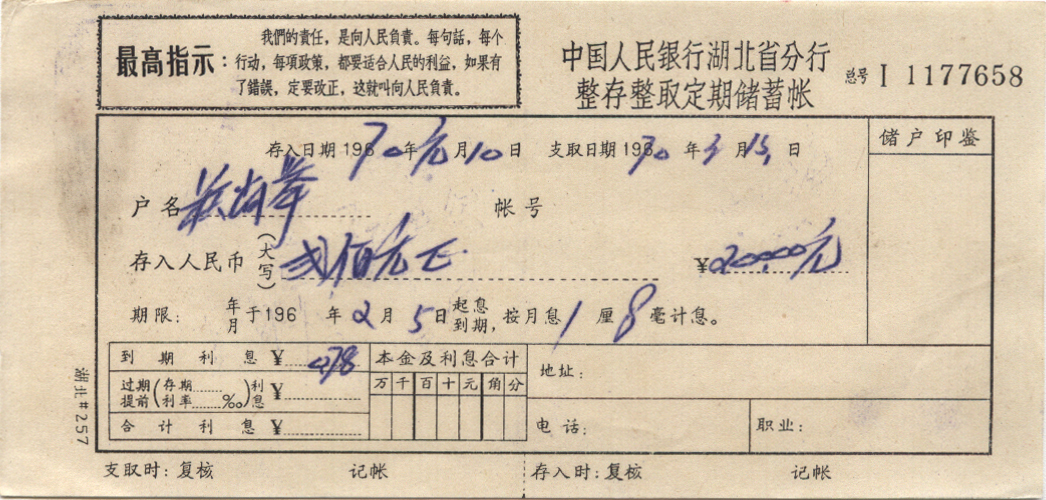 最高指示:
我們的責任,是向人民負責。每句話,每个
行动,每項政策,都要适合人民的利益,如果有
了錯誤,定要改正,这就叫向人民負責。
中国人民银行湖北省分行
整存整取定期储蓄帐
总号 I 1177658
存入日期 196 70年元月10日 支取日期 196 70年3月15日
储户印鉴
户名
帐号
存入人民币(大写) 贰佰元正
¥200.00元
期限: 年月于196 年2月5日起息到期,按月息1厘8毫计息。
到期利息¥ 0.78
本金及利息合计
过期提前(存期 利率 ‰)利息¥
万千百十元角分
合计利息¥
地址:
电话:
职业:
湖北#257
支取时:复核 记帐 存入时:复核 记帐